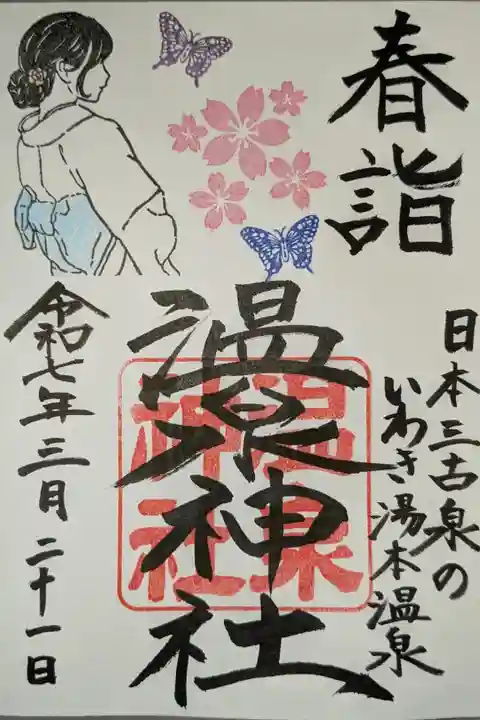 春詣
日本三古泉の
いわき湯本温泉
温泉神社
温泉神社
令和七年三月二十一日